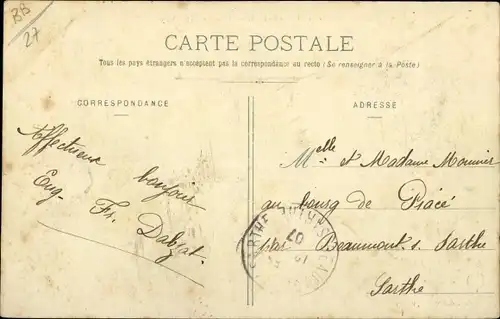 BB
27
CARTE POSTALE
Tous les pays étrangers n'acceptent pas la correspondance au recto (Se renseigner à la Poste)
CORRESPONDANCE
ADRESSE
Affectueux bonjour
Eug. Fr. Dabzat.
Melle et Madame Mounier
au bourg de Piacé
par Beaumont s. Sarthe
Sarthe
SARTHE
07